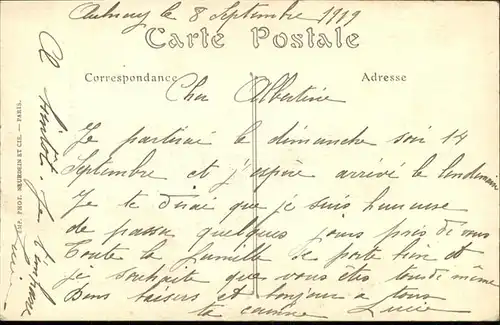 Aulnay le 8 Septembre 1919
Carte Postale
Correspondance
Adresse
Cher Albertine
Je partirai le dimanche soir 14
Septembre et j'espère arrivé le lendemain
Je te dirai que je suis heureuse
de passer quelques jours près de vous
Toute la famille se porte bien et
je souhaite que vous êtes tous de même
Bons baisers et bonjour a tous
la cousine Lucie
A bientôt. Je t'embrasse
Lucie
IMP. PHOT. NEURDEIN ET CIE. — PARIS.